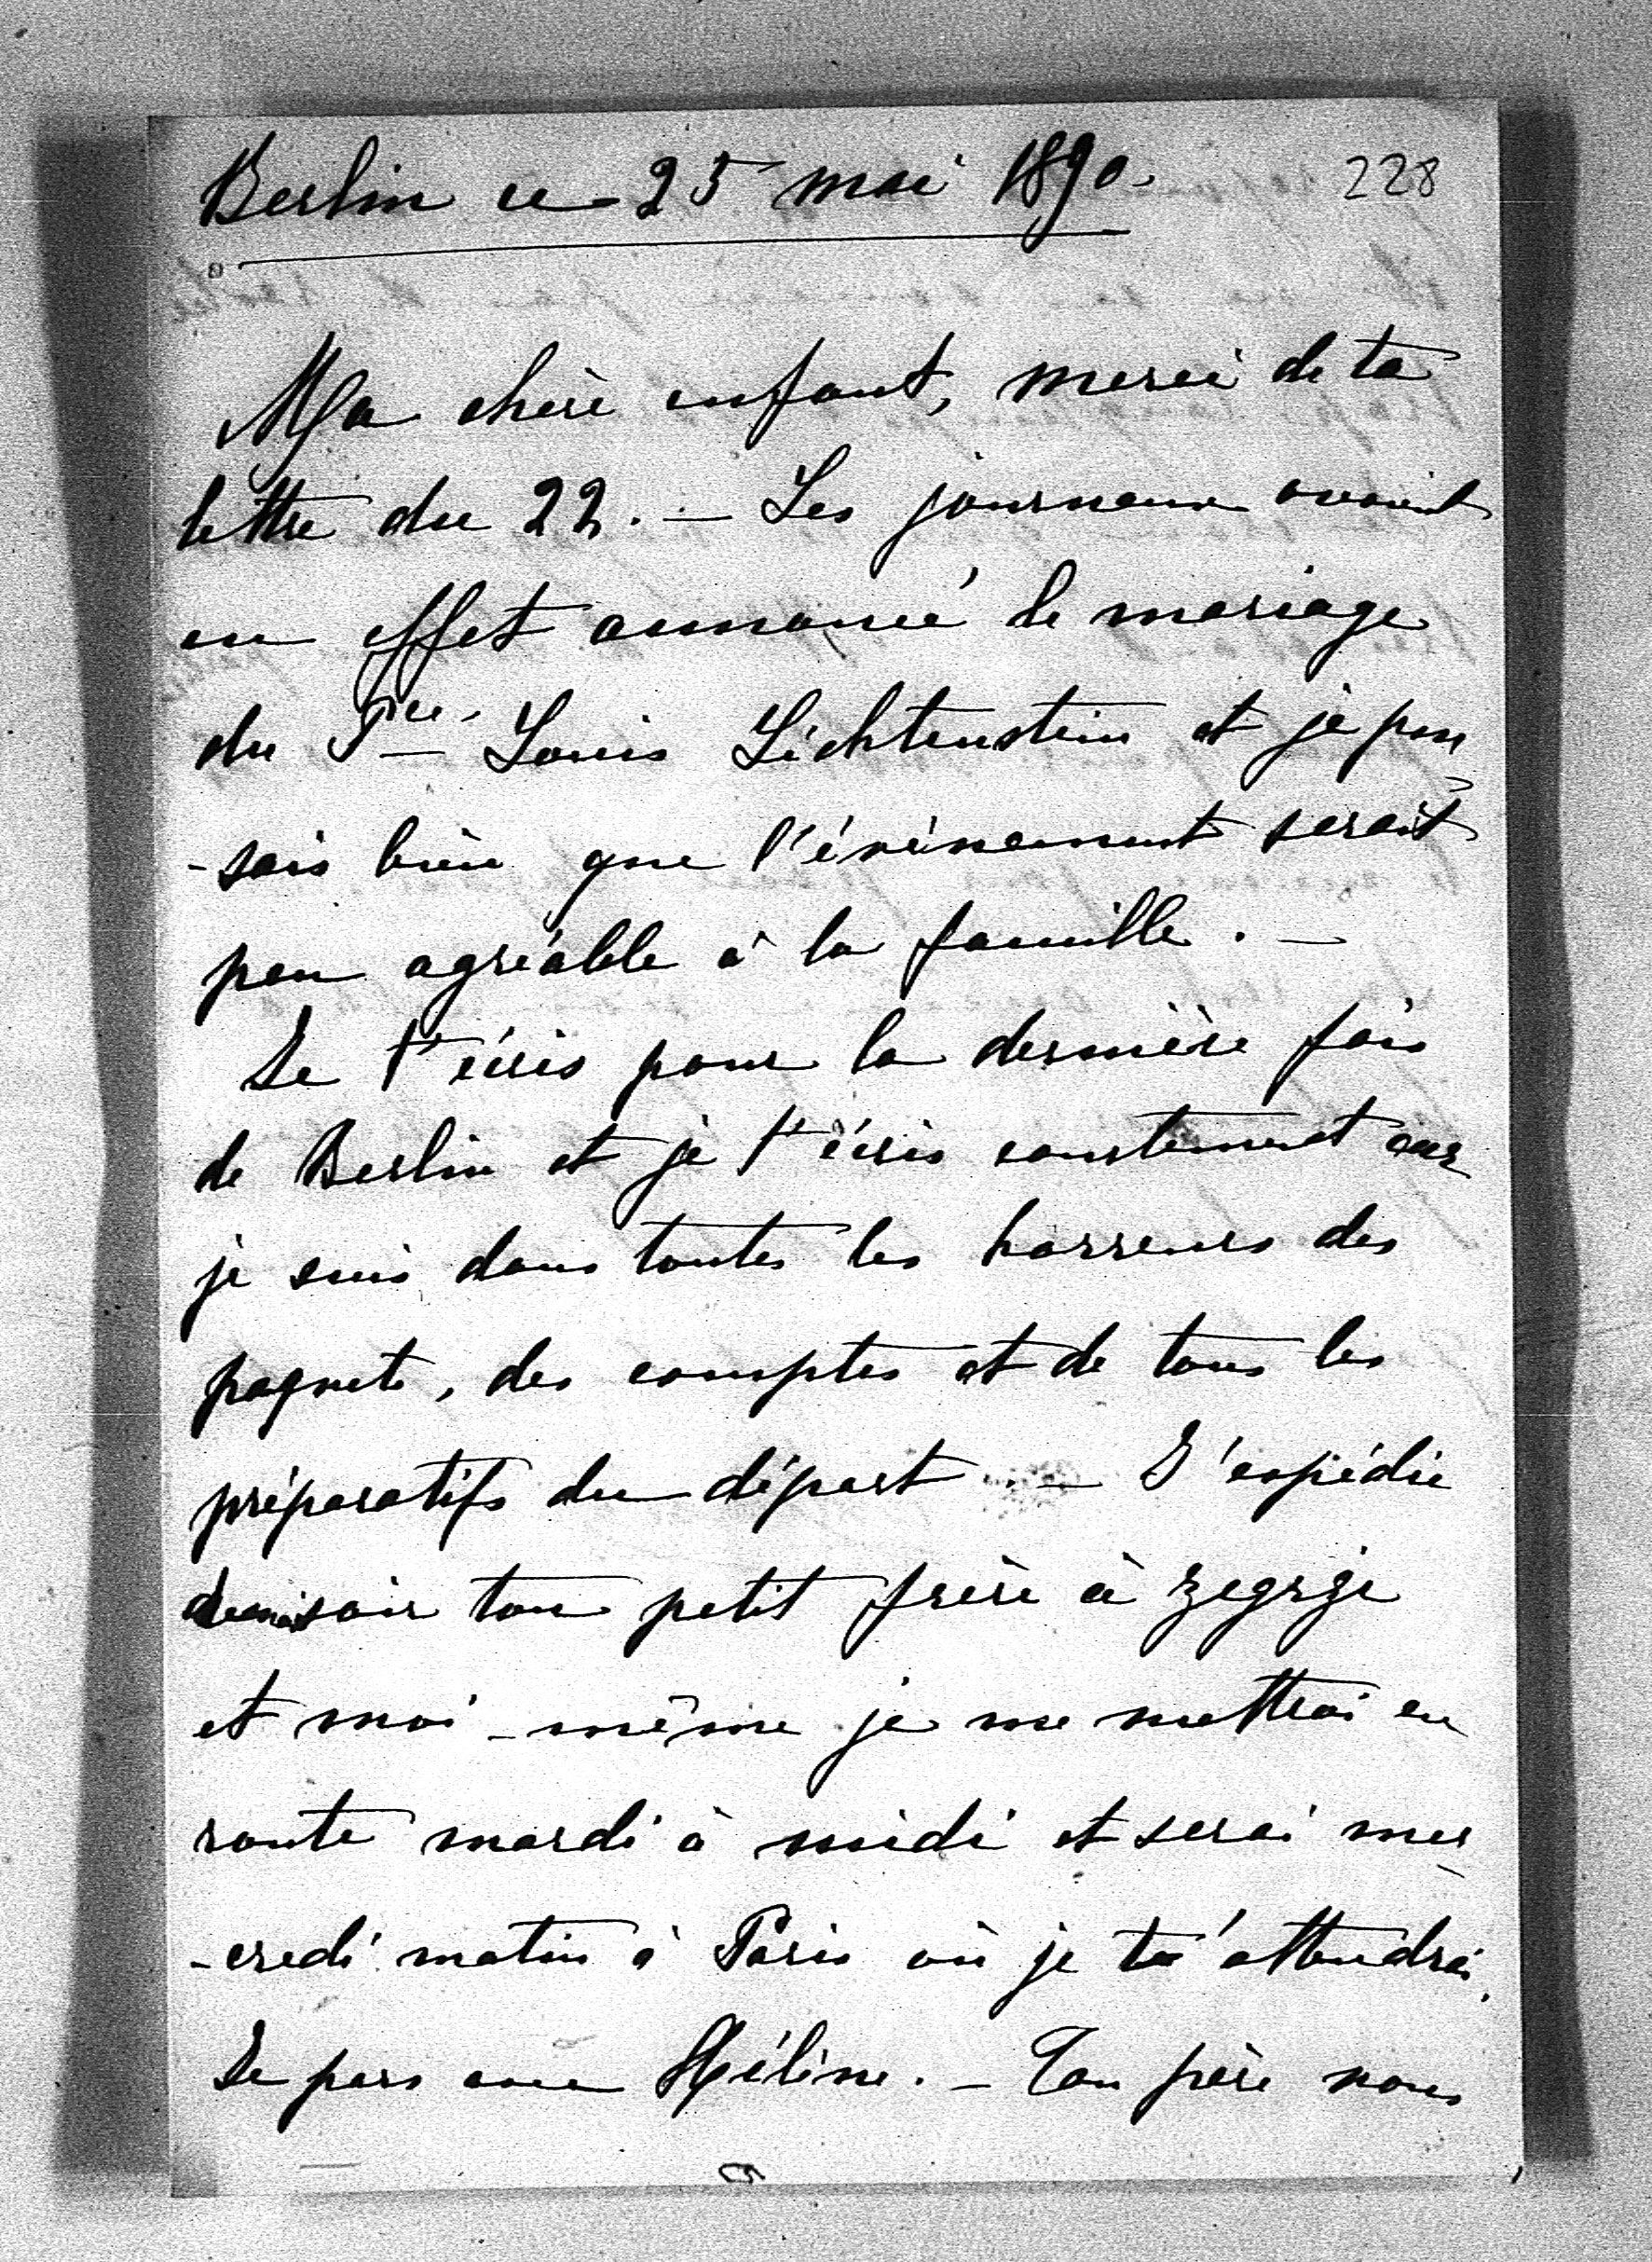 Berlin ce 25 mai 1890.
228
Ma chère enfant, merci de ta
lettre du 22. — Les journaux avaient
en effet annoncé le mariage
du Pce. Louis Lichtenstein et je pen
-sais bien que l'évènement serait
peu agréable à la famille. —
Je t'écris pour la dernière fois
de Berlin et je t'écris courtement car
je suis dans toutes les horreurs des
paquets, des comptes et de tous les
préparatifs du départ. — J'expédie
demain soir ton petit frère à Zegrze
et moi-même je me mettrai en
route mardi à midi et serai mer
-credi matin à Paris où je t'attendrai.
Je pars avec Hélène. — Ton père nous